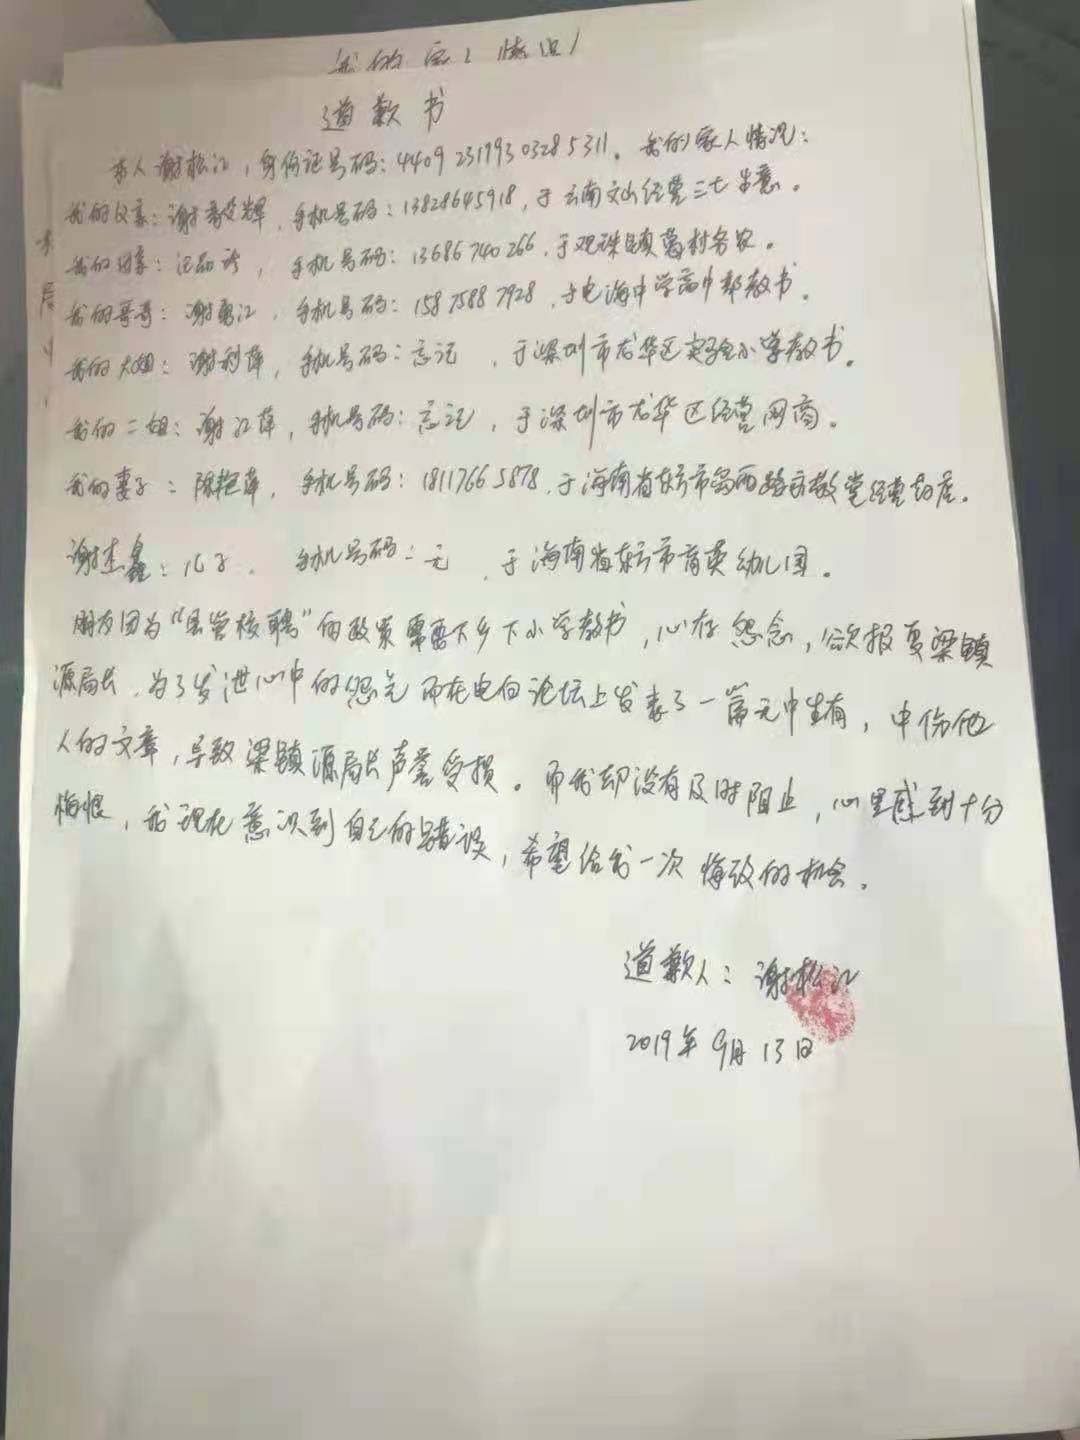 道歉书
本人谢松江，身份证号码：440923199303285311。我的家人情况：
我的父亲：谢 辉，手机号码：13828645918，于云南文山经营三七生意。
我的母亲： ，手机号码：13686740266，于观珠镇 村务农。
我的哥哥：谢勇江，手机号码：15875887928，于电海中学高中部教书。
我的大姐：谢利萍，手机号码：忘记，于深圳市龙华区实验小学教书。
我的二姐：谢江萍，手机号码：忘记，于深圳市龙华区经营网商。
我的妻子：陈艳萍，手机号码：18117665878，于海南省东方市 西路 教堂经营 店。
谢杰鑫：儿子，手机号码：无，于海南省东方市育英幼儿园。
朋友因为“县管校聘”的政策需要下乡下小学教书，心存怨念，欲报复梁镇
源局长，为了发泄心中的怨气而在电白论坛上发表了一篇无中生有，中伤他
人的文章，导致梁镇源局长声誉受损。而我却没有及时阻止，心里感到十分
悔恨，我现在意识到自己的错误，希望给我一次悔改的机会。
道歉人：谢松江
2019年9月13日